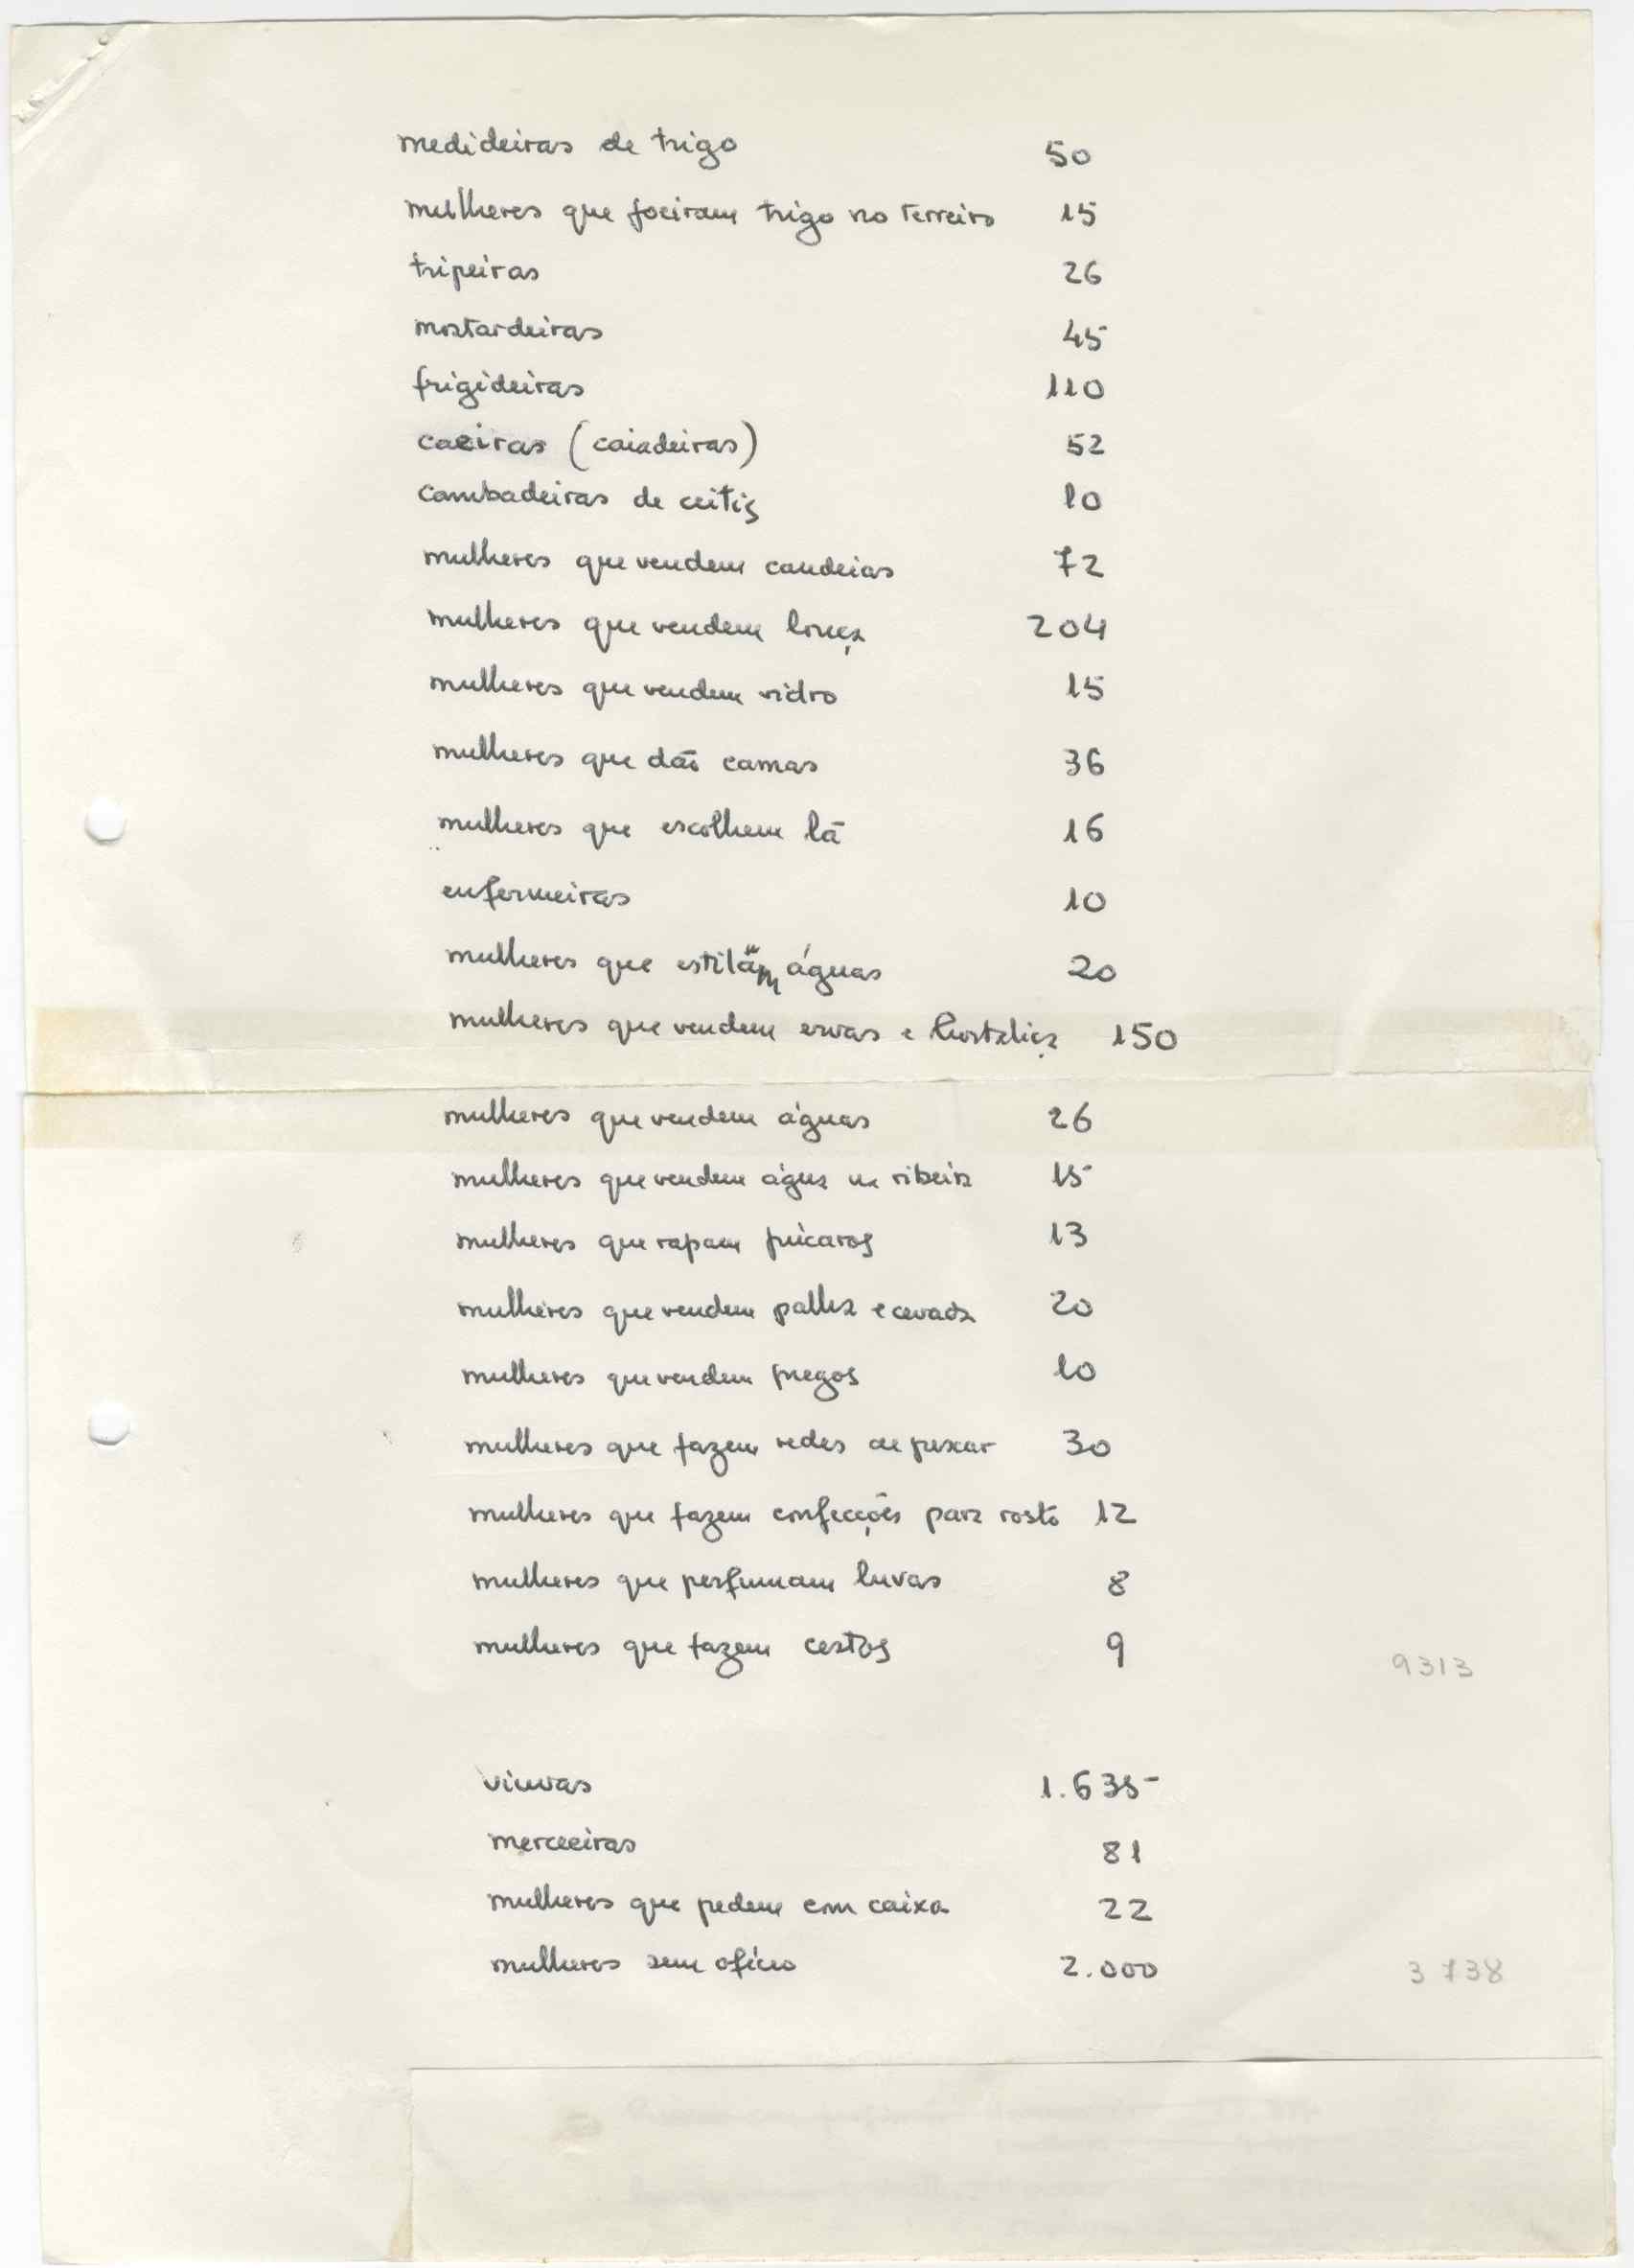 medideiras de trigo 50
mulheres que joeiram trigo no terreiro 15
tripeiras 26
mostardeiras 45
frigideiras 110
caeiras (caiadeiras) 52
cambadeiras de ceitis 10
mulheres que vendem candeias 72
mulheres que vendem louça 204
mulheres que vendem vidro 15
mulheres que dão camas 36
mulheres que escolhem lã 16
enfermeiras 10
mulheres que estilam águas 20
mulheres que vendem ervas e hortaliça 150
mulheres que vendem águas 26
mulheres que vendem água na ribeira 15
mulheres que rapam púcaros 13
mulheres que vendem palha e cevada 20
mulheres que vendem pregos 10
mulheres que fazem redes de pescar 30
mulheres que fazem confecções para rosto 12
mulheres que perfumam luvas 8
mulheres que fazem cestos 9
9313
viuvas 1.635
merceeiras 81
mulheres que pedem com caixa 22
mulheres sem ofício 2.000
3738